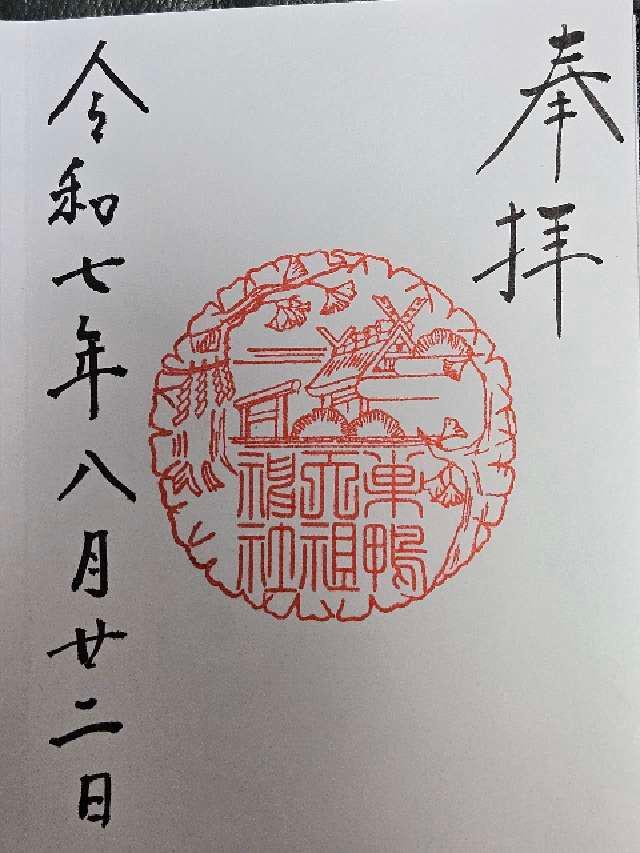 奉拝
東鴨
天祖
神社
令和七年八月廿二日